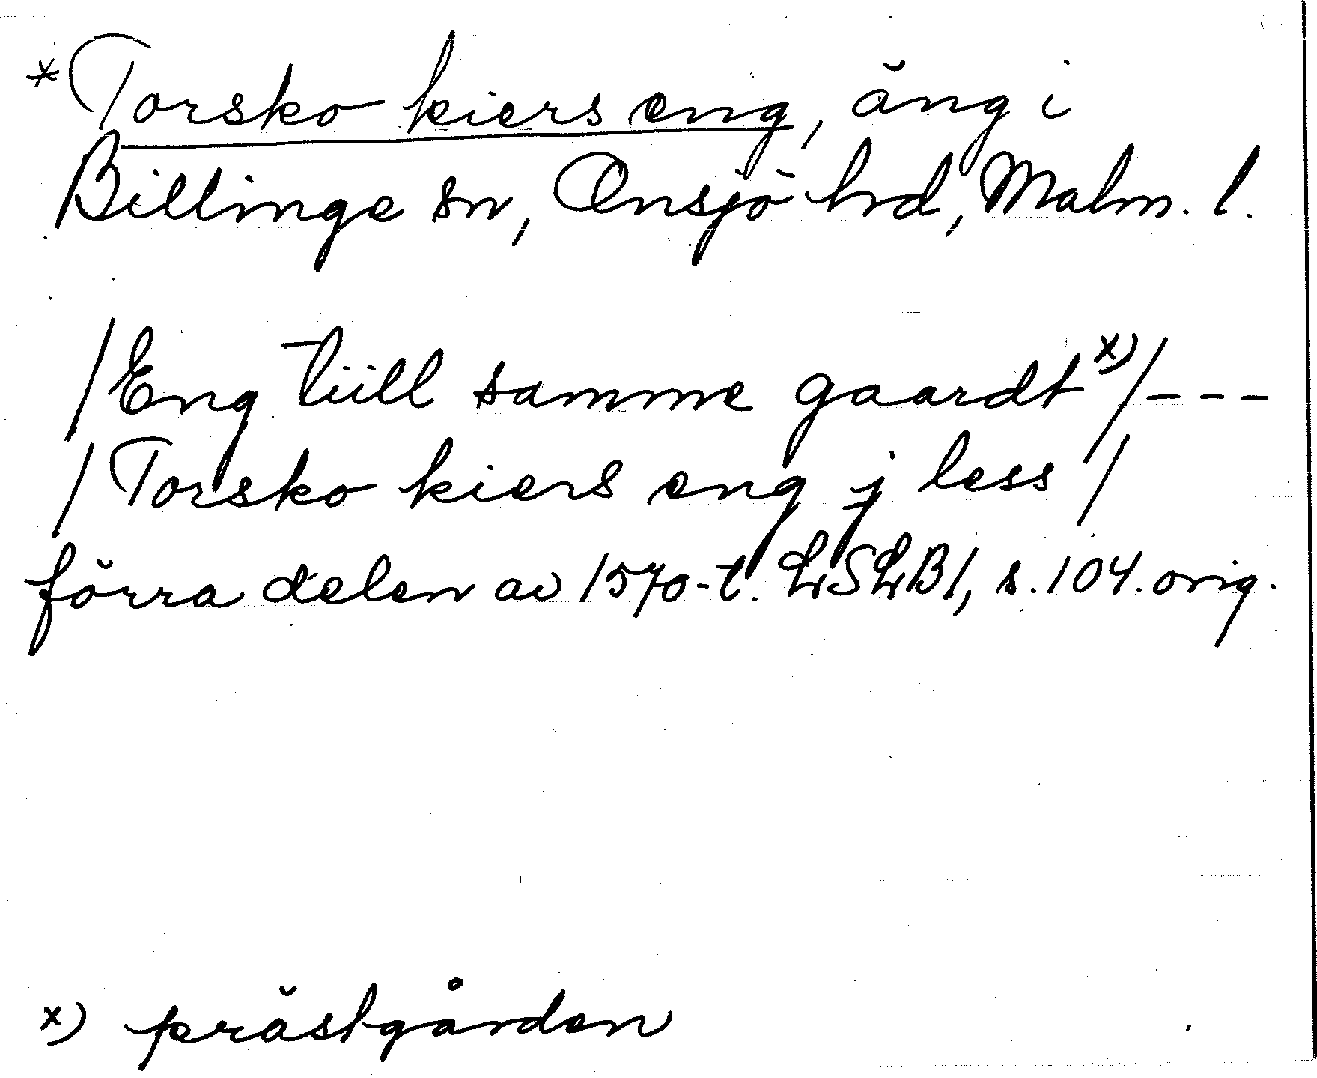 *Torsko kiers eng, äng i
Billinge sn, Onsjö hrd, Malm. l.
/Eng tiill samme gaardt x)/---
/Torsko kiers eng j less/
förra delen av 1570-t. LSLB1, s. 104. orig.
x) prästgården